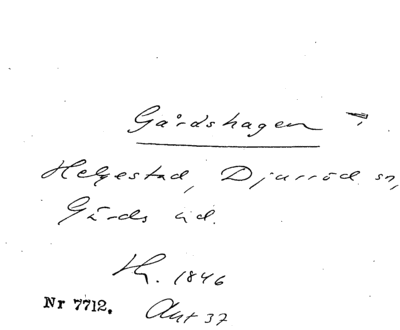 Gårdshagen
Helgestad, Djurröd sn,
Gärds hd.
Hr. 1846
Nr 7712. Akt 37